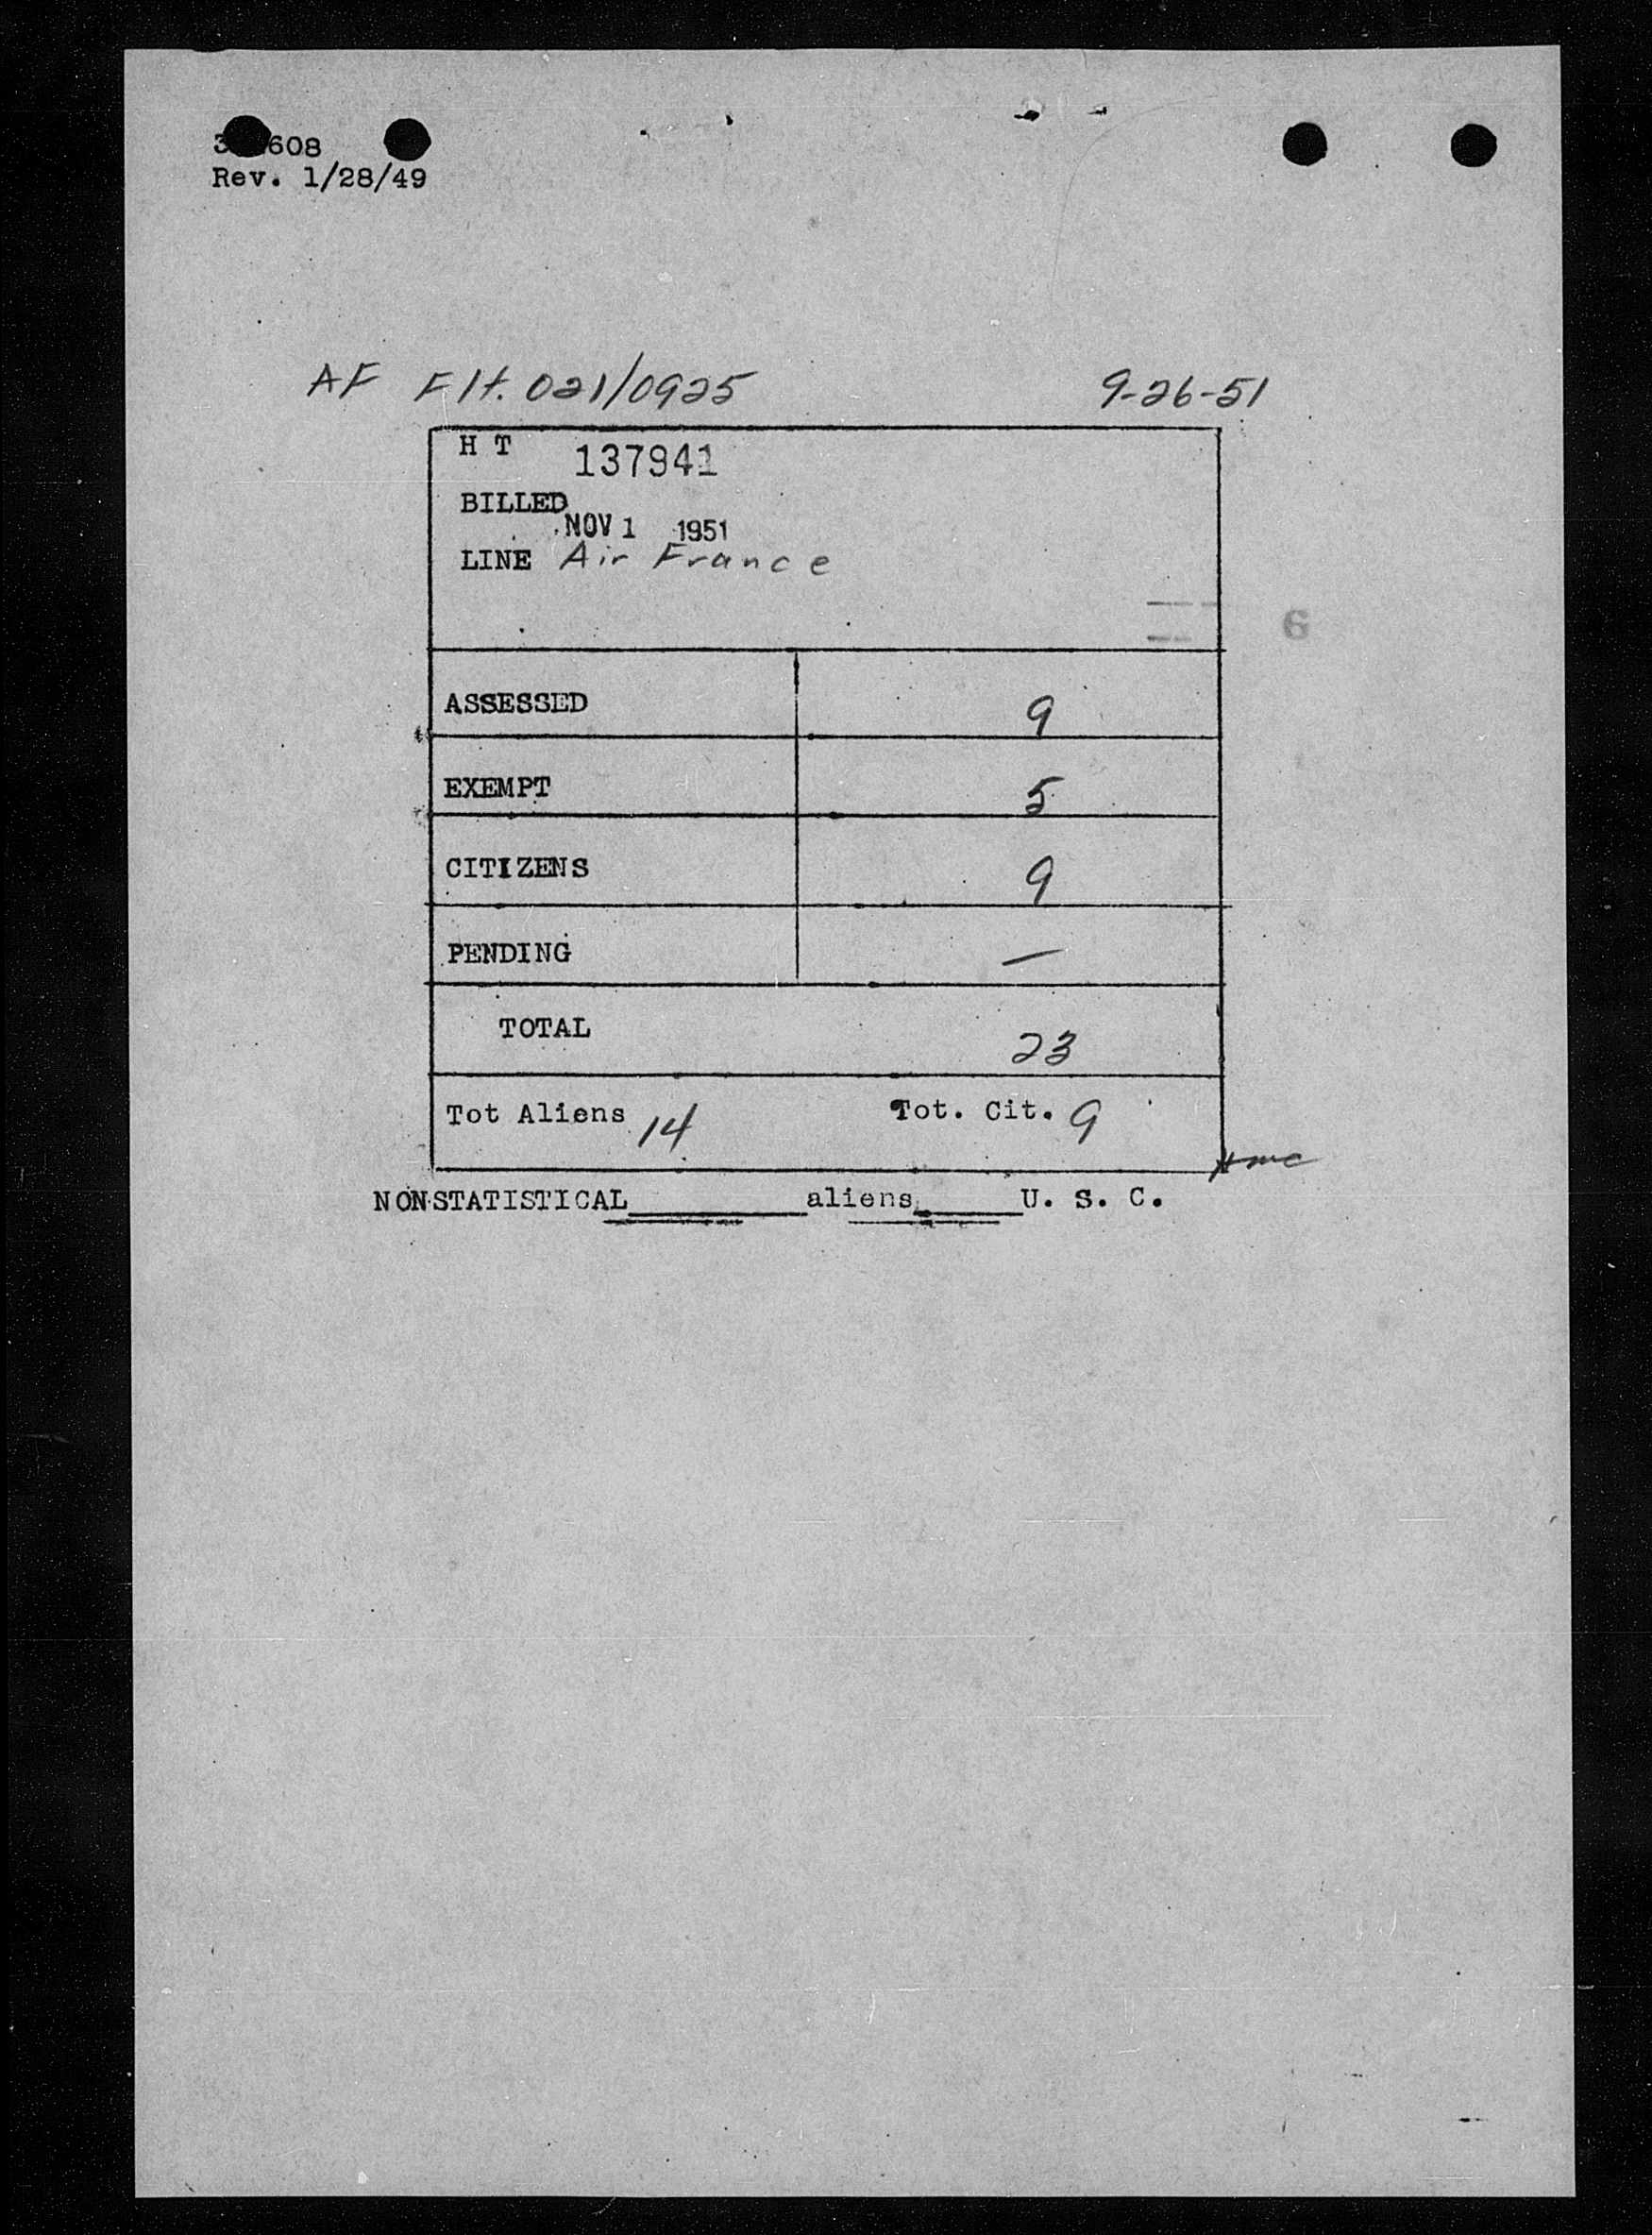 608
Rev. 1/28/49
AF Flt. 021/0925 9-26-51
H T 137941
BILLED
NOV 1 1951
LINE Air France
6
ASSESSED 9
EXEMPT 5
CITIZENS 9
PENDING —
TOTAL 23
Tot Aliens 14 Tot. Cit. 9
NONSTATISTICAL________aliens_____U. S. C.